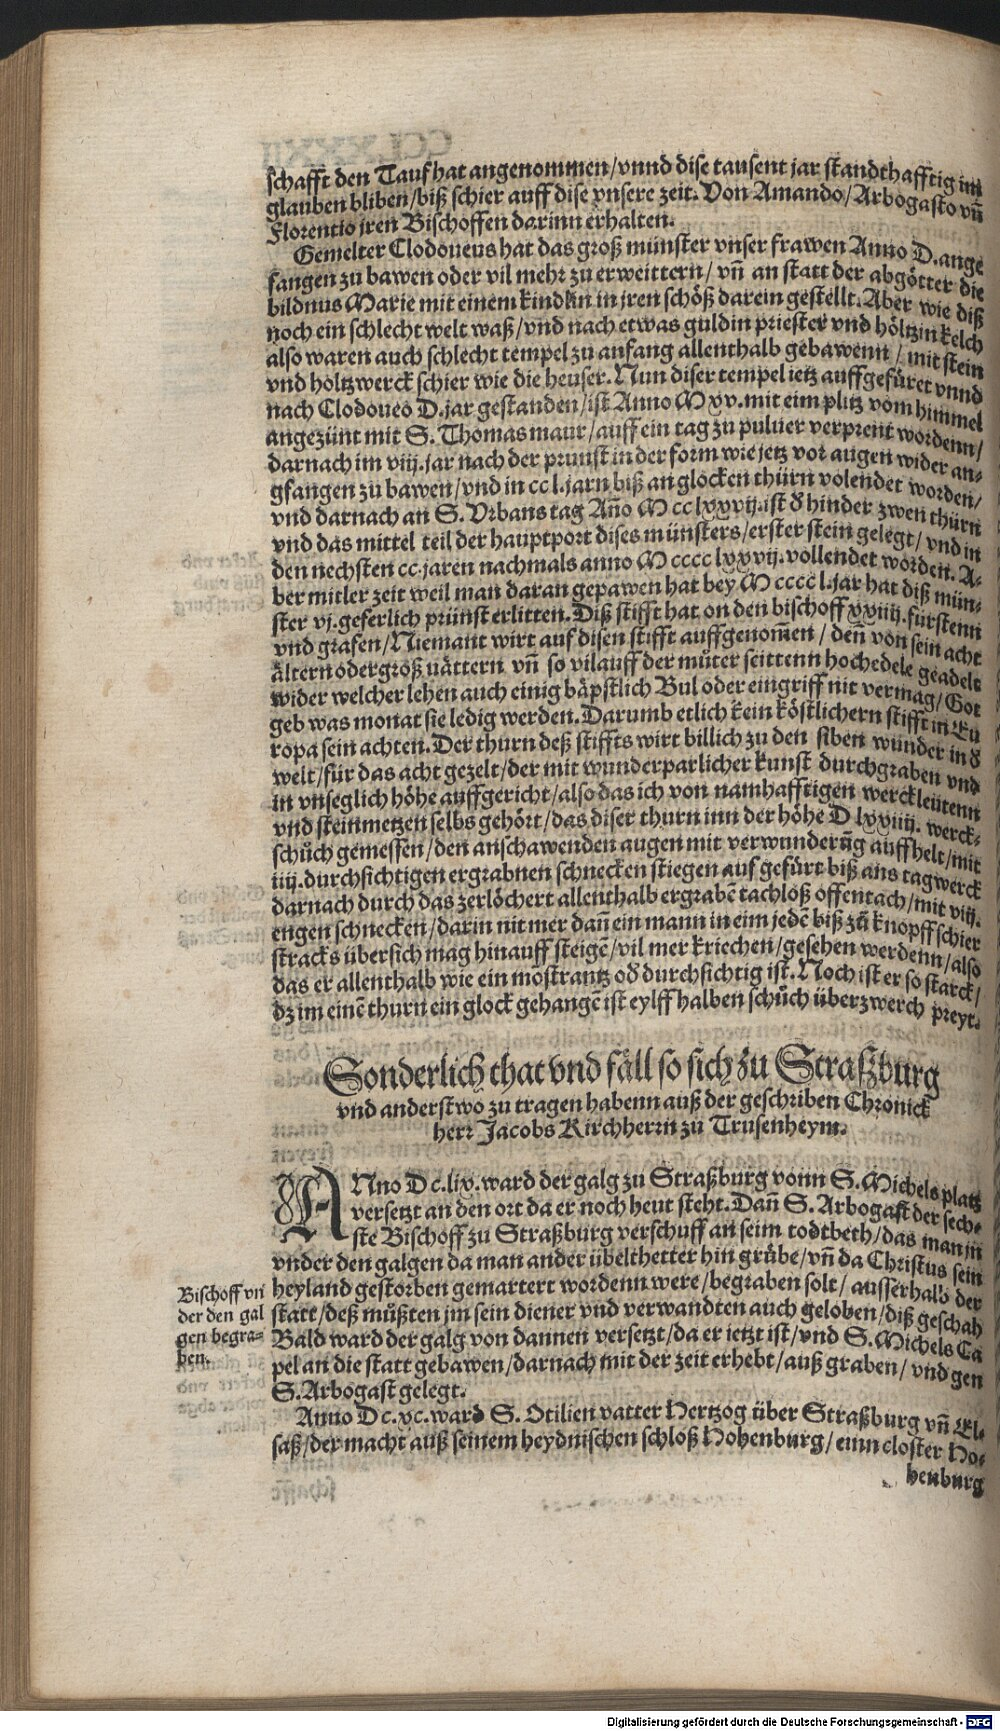 schafft den Tauf hat angenommen/vnnd dise tausent jar standthafftig im
glauben bliben/biß schier auff dise vnsere zeit. Von Amando/Arbogasto vñ
Florentio jren Bischoffen darinn erhalten.
Gemelter Clodoueus hat das groß münster vnser frawen Anno D. ange
fangen zu bawen oder vil mehr zu erweittern/ vñ an statt der abgötter die
bildnus Marie mit einem kindlin in jren schöß darein gestellt. Aber wie diß
noch ein schlecht welt waß/vnd nach etwas guldin priester vnd höltzin kelch
also waren auch schlecht tempel zu anfang allenthalb gebawenn/ mit stein
vnd holtzwerck schier wie die heuser. Nun diser tempel ietz auffgefüret vnnd
nach Clodoueo D. jar gestanden/ist Anno M xv. mit eim plitz vom himmel
angezünt mit S. Thomas maur/auff ein tag zu puluer verprent wordenn/
darnach im viij. jar nach der prunst in der form wie jetz vor augen wider an-
gfangen zu bawen/vnd in cc l. jarn biß an glocken thürn volendet worden/
vnd darnach an S. Vrbans tag AñO M cc lxxvij. ist ð hinder zwen thürn
vnd das mittel teil der hauptport dises münsters/erster stein gelegt/ vnd in
den nechsten cc. jaren nachmals anno M cccc lxxvij. vollendet worden. A-
ber mitler zeit weil man daran gepawen hat bey M cccc l. jar hat diß mün-
ster vj. geferlich prünst erlitten. Diß stifft hat on den bischoff xxiiij. fürstenn
vnd grafen/Niemant wirt auf disen stifft auffgenom̃en/ deñ von sein acht
ältern oder groß uättern vñ so vil auff der můter seittenn hochedele geadelt
wider welcher lehen auch einig bäpstlich Bul oder eingriff nit vermag/Got
geb was monat sie ledig werden. Darumb etlich kein köstlichern stifft in Eu
ropa sein achten. Der thurn deß stiffts wirt billich zu den siben wunder in ð
welt/für das acht gezelt/der mit wunderparlicher kunst durchgraben vnd
in vnseglich höhe auffgericht/also das ich von namhafftigen werckleütenn
vnd steinmetzen selbs gehört/das diser thurn inn der höhe D lxxiiij. werck-
schůch gemessen/den anschawenden augen mit verwunderũg auffhelt/mit
iiij. durchsichtigen ergrabnen schnecken stiegen auf gefürt biß ans tagwerck
darnach durch das zerlöchert allenthalb ergrabẽ tachloß offentach/mit viij.
engen schnecken/darin nit mer dañ ein mann in eim jedẽ biß zũ knopff schier
stracks übersich mag hinauff steigẽ/vil mer kriechen/gesehen werdenn/also
das er allenthalb wie ein mostrantz oð durchsichtig ist. Noch ist er so starck/
dz im einẽ thurn ein glock gehangẽ ist eylff halben schůch überzwerch preyt.
Sonderlich that vnd fäll so sich zu Straßburg
vnd anderstwo zu tragen habenn auß der geschriben Chronick
herr Jacobs Kirchherrn zu Trusenheym.
ANno D c. lix. ward der galg zu Straßburg vonn S. Michels platz
versetzt an den ort da er noch heut steht. Dañ S. Arbogast der sech-
ste Bischoff zu Straßburg verschuff an seim todtbeth/das man jn
vnder den galgen da man ander übelthetter hin grübe/vñ da Christus sein
heyland gestorben gemartert wordenn were/begraben solt/ ausserhalb der
statt/deß můßten jm sein diener vnd verwandten auch geloben/diß geschah
Bald ward der galg von dannen versetzt/da er ietzt ist/vnd S. Michels Ca
pel an die statt gebawen/darnach mit der zeit erhebt/auß graben/ vnd gen
S. Arbogast gelegt.
Bischoff vn
der den gal
gen begra-
ben.
Anno D c. xc. ward S. Otilien vatter Hertzog über Straßburg vñ El-
saß/der macht auß seinem heydnischen schloß Hohenburg/einn closter Ho-
henburg
Digitalisierung gefördert durch die Deutsche Forschungsgemeinschaft - DFG